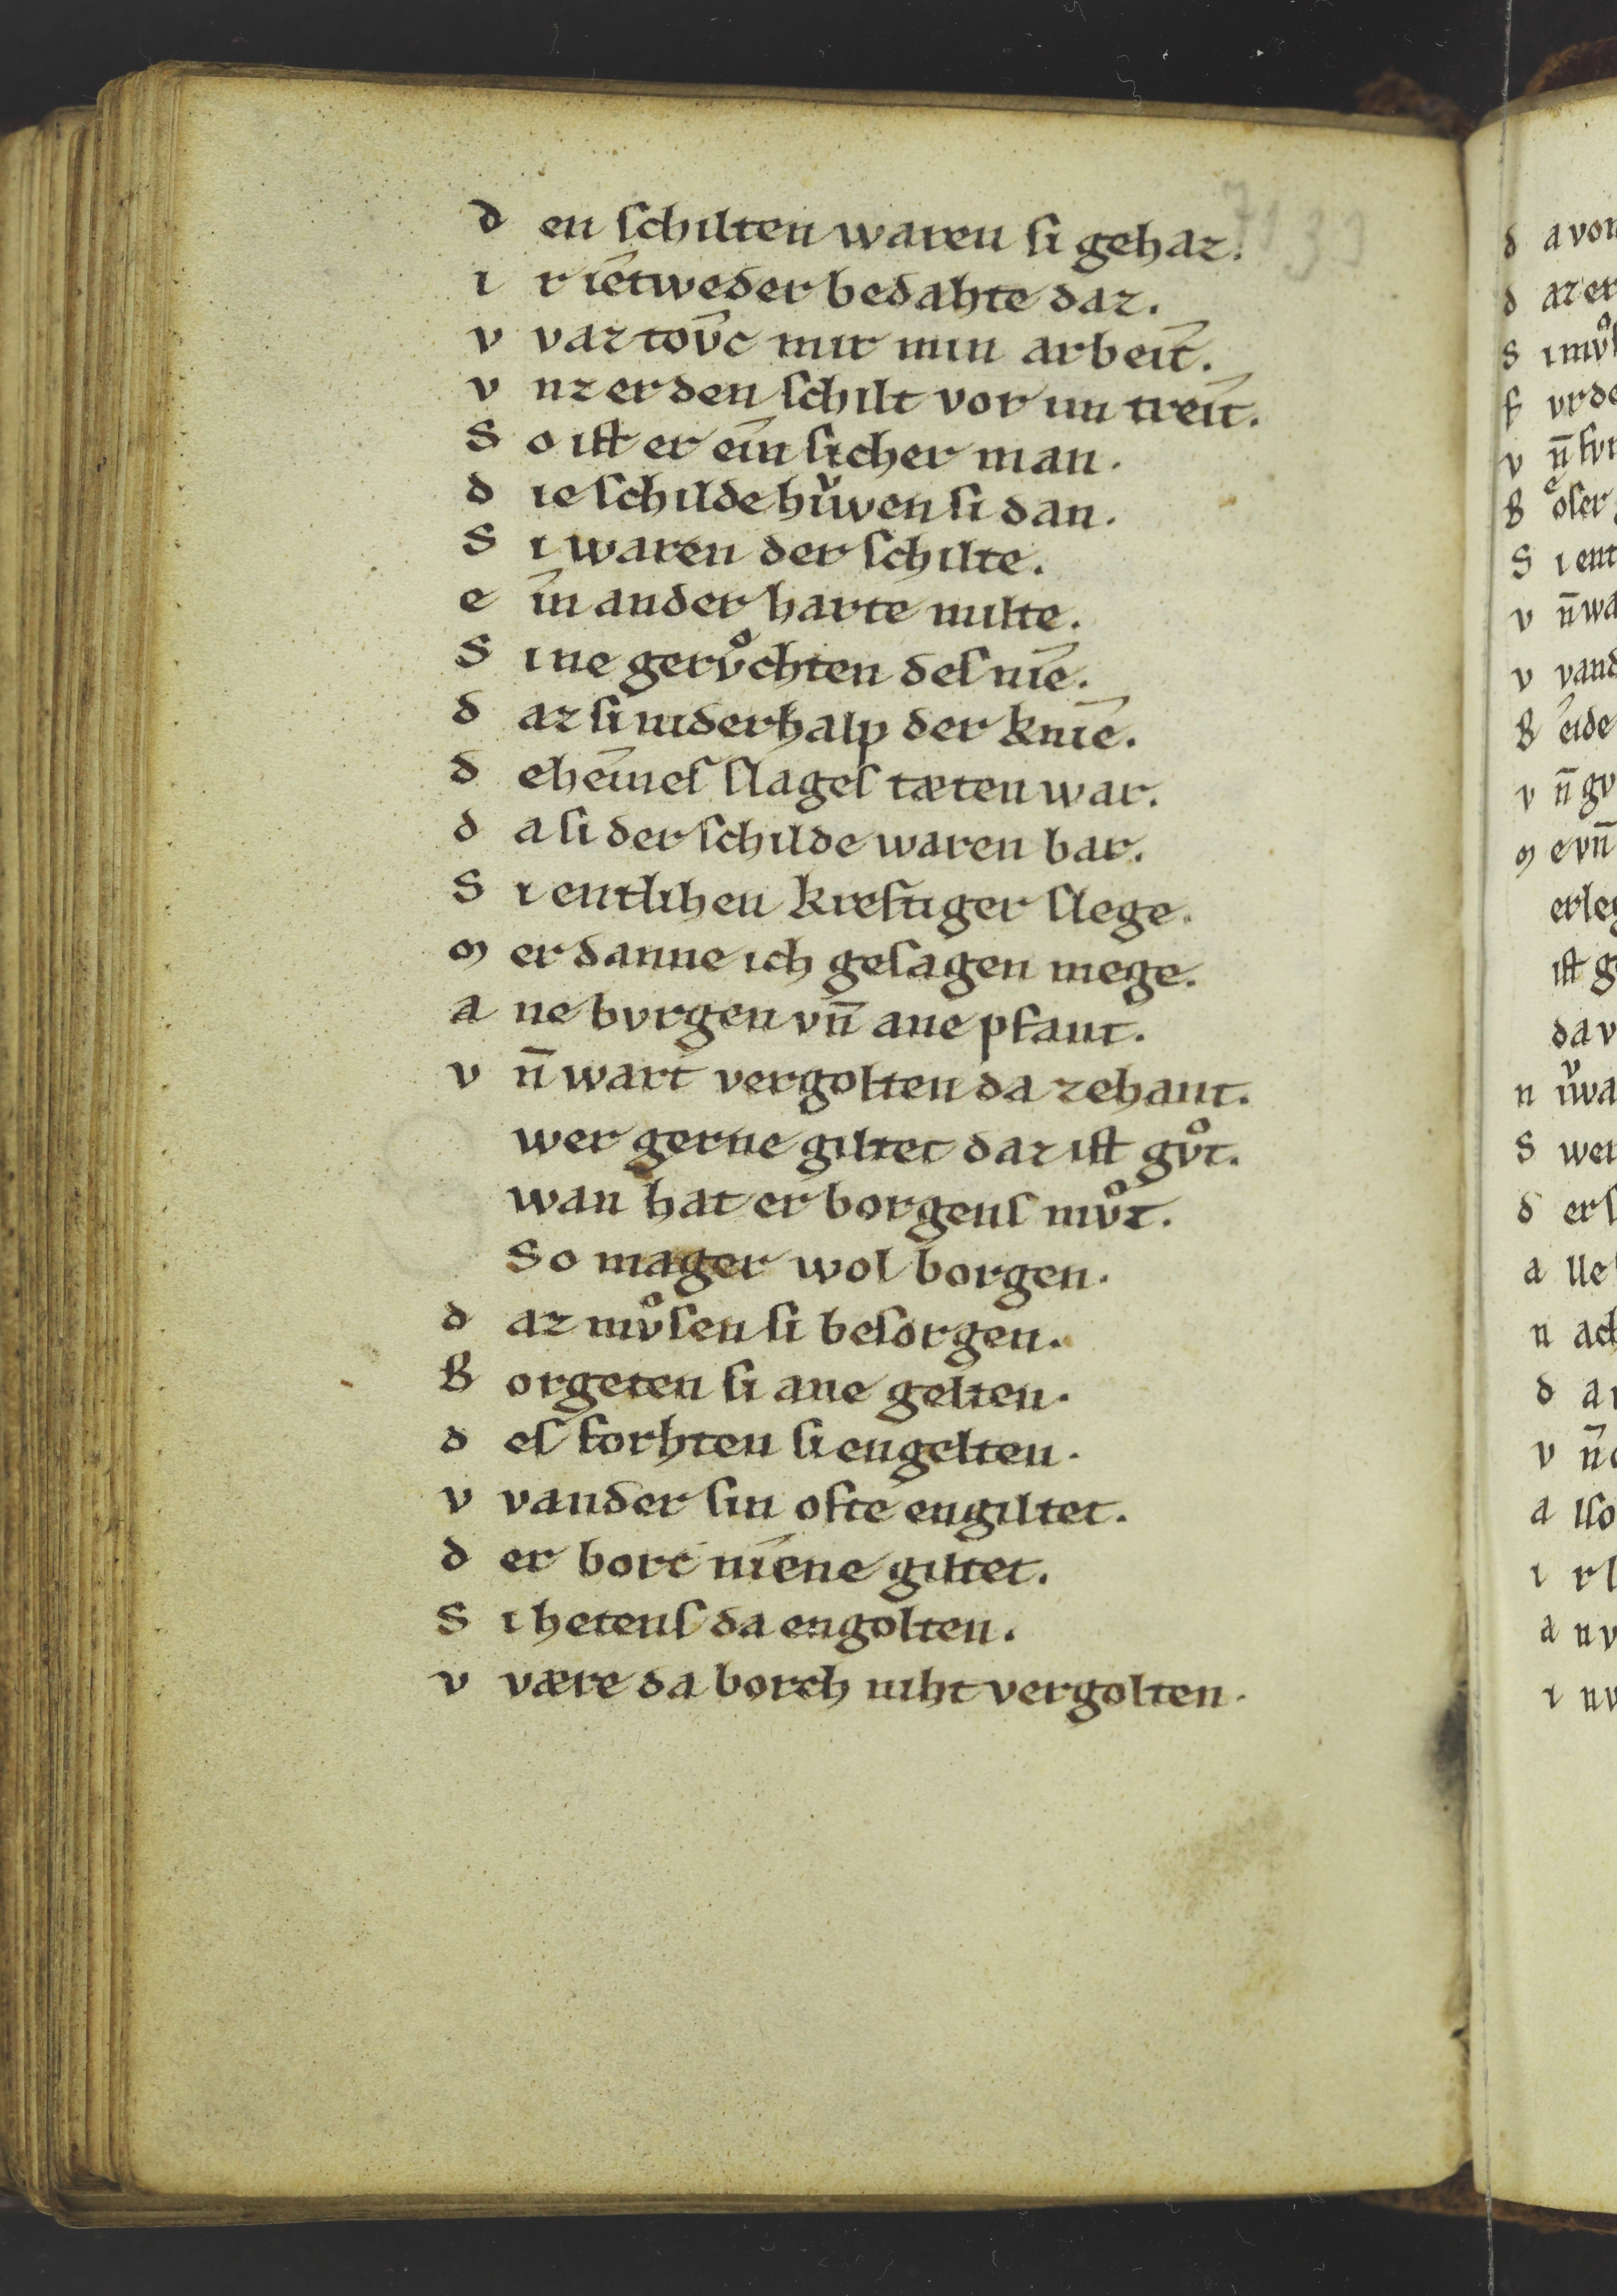 7133
d en ſchilten waren ſi gehaz.
i r îetweder bedahte daz.
v vaz tov̂c mir min arbeît.
v nz er den ſchilt vor im treît.
S o iſt er eîn ſicher man.
d ie ſchilde hıͮwen ſi dan.
S i waren der ſchilte.
e în ander harte milte.
S i ne gervͦchten deſ nîe.
d az ſi niderhalp der knîe.
d eheîneſ ſlageſ tæten war.
d a ſi der ſchilde waren bar.
S i entlihen kreftiger ſlege.
m er danne ich geſagen mege.
a ne bvrgen vn̄ ane pfant.
v n̄ wart vergolten da zehant.
wer gerne giltet daz iſt gvͦt.
wan hat er borgenſ mvͦt.
So mager wol borgen.
d az mvͦſen ſi beſorgen.
B orgeten ſi ane gelten.
d eſ forhten ſi engelten.
v vander ſin ofte engiltet.
d er borc nîene giltet.
S i hetenſ da engolten.
v være da borch niht vergolten.
d avon
d az er
S i mvͦſ
f vrde
v n̄ fvr
B oͤſer
S i ent
v n̄ wa
v vand
B êide
v n̄ gv
m e vn̄
erleg
iſt g
da v
n ıͮwa
S wer
d er ſ
a lle
n ach
d a
v n̄
a lſo
i r l
a nv
i nv